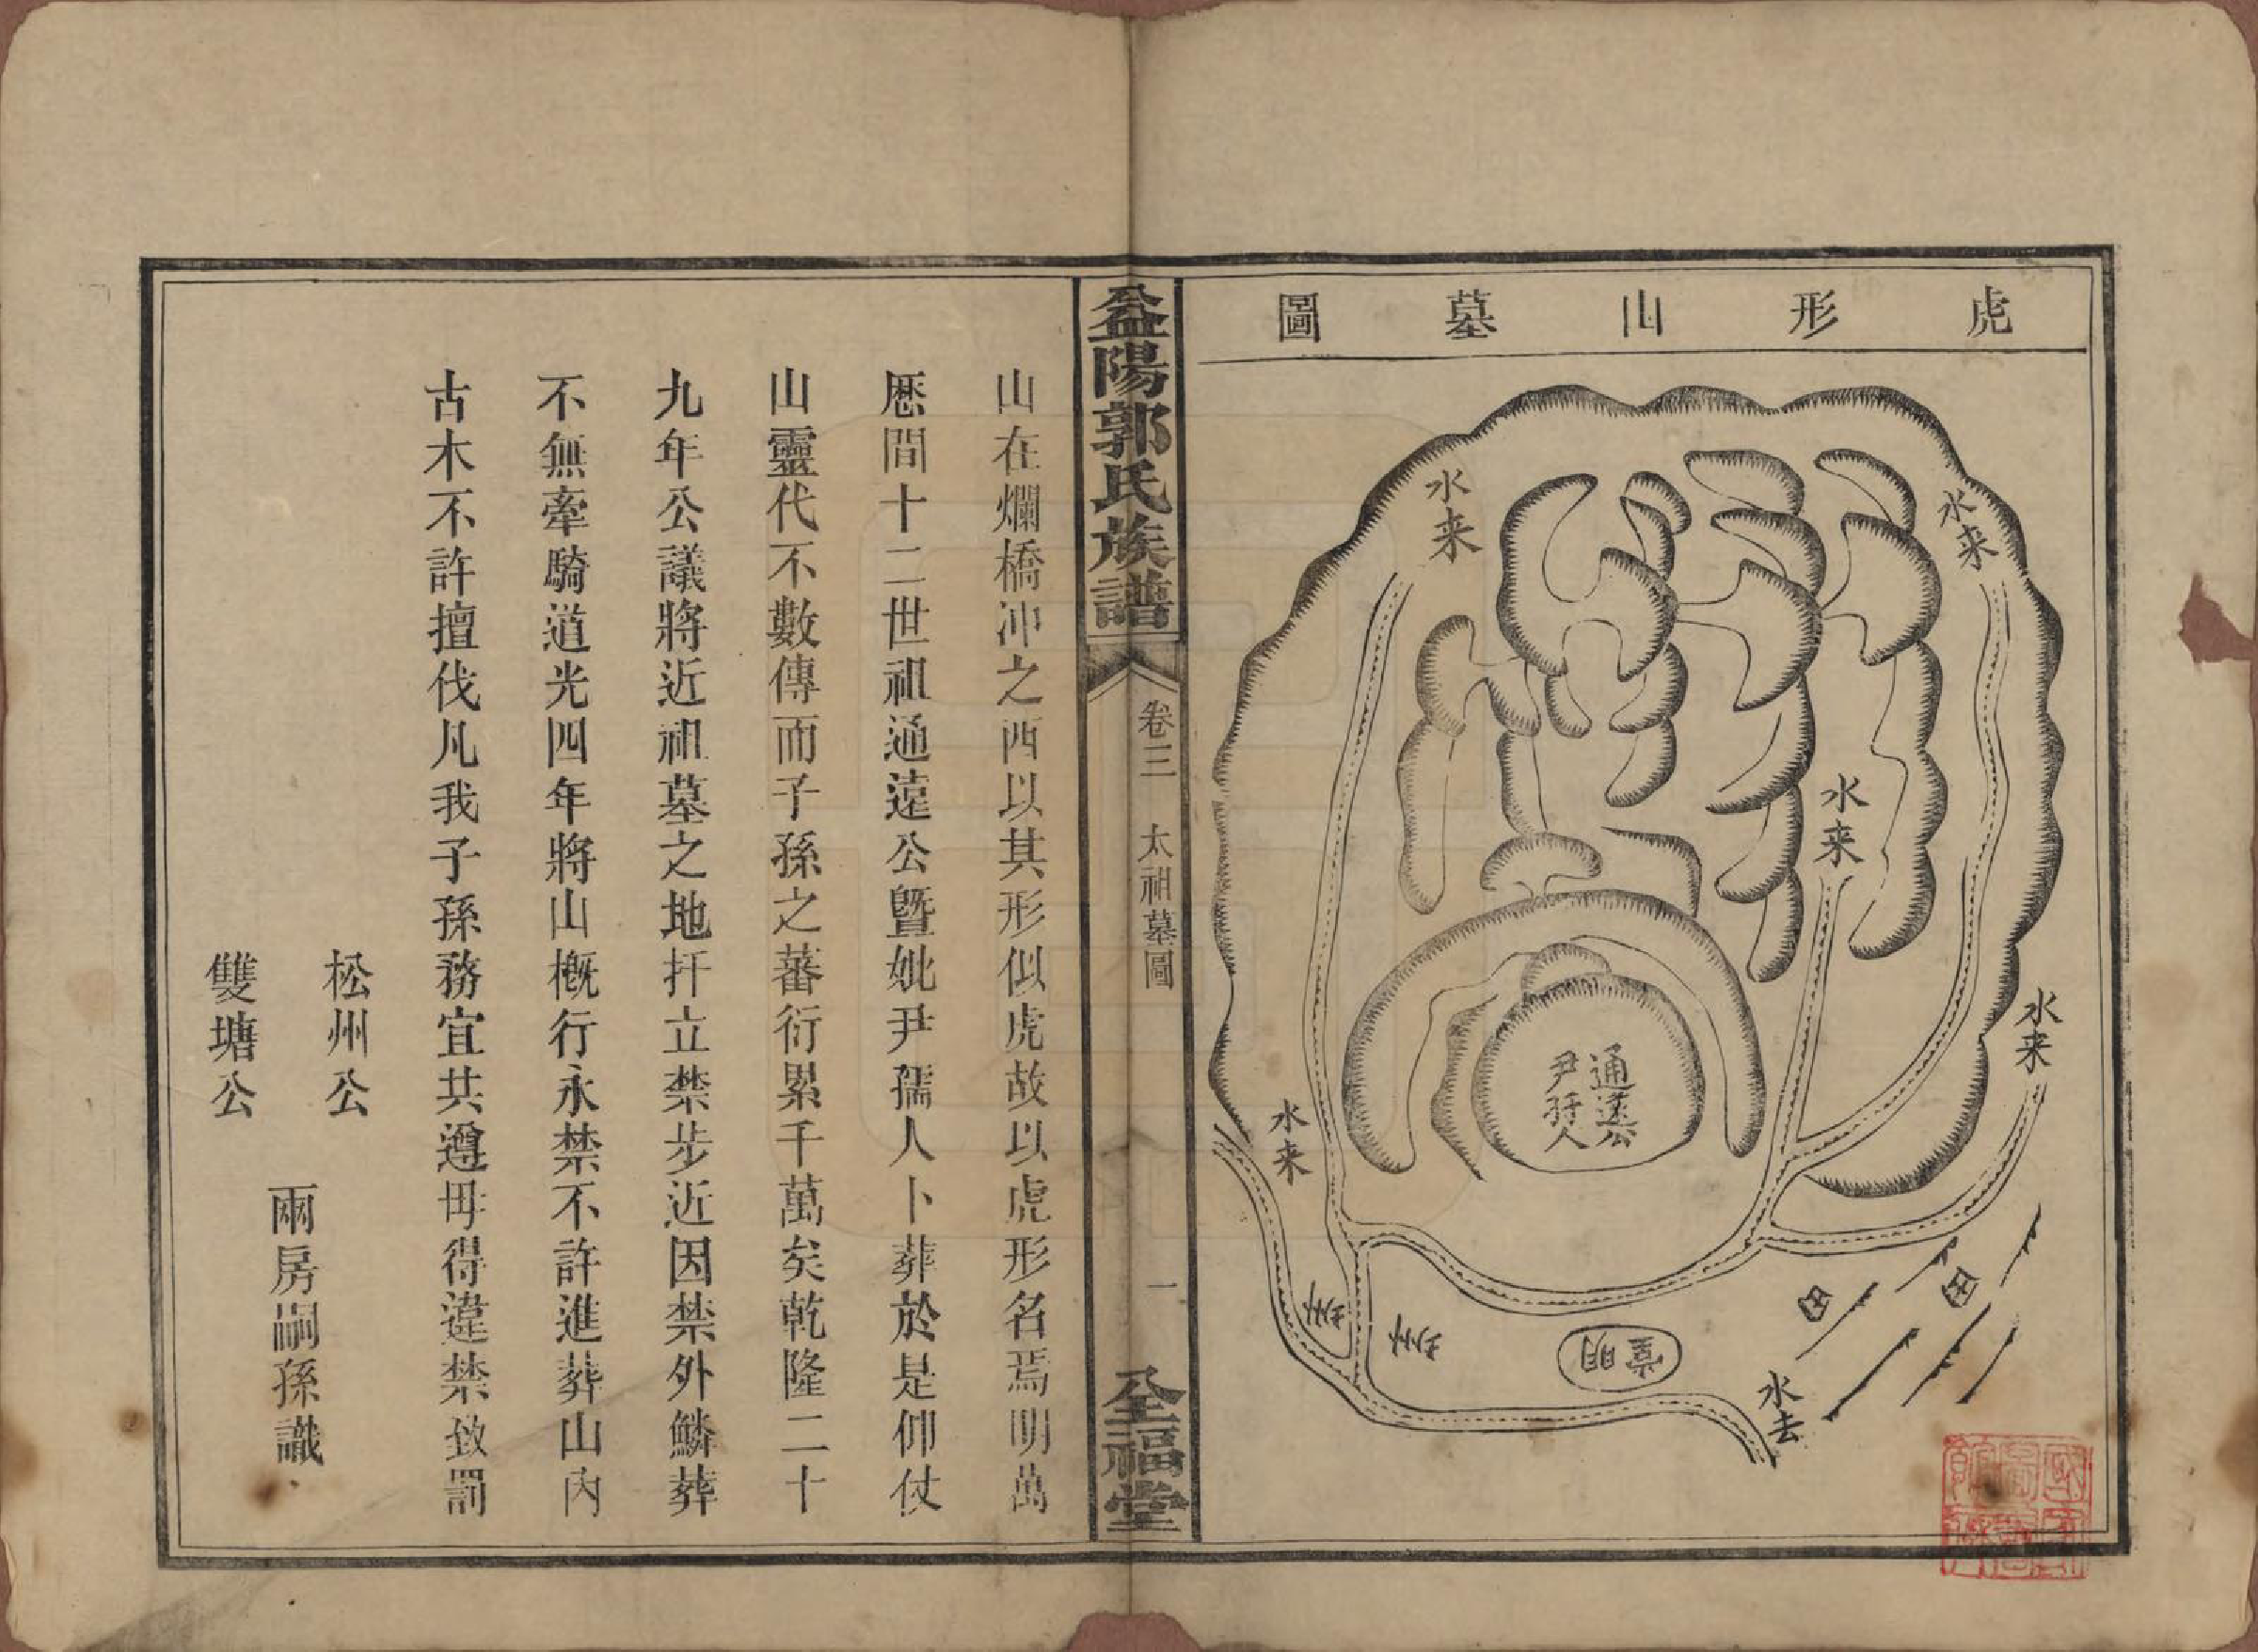 虎形山墓圖
水来
水来
水来
水来
水来
水去
通遠公
尹孺人
明堂
田
田
益陽郭氏族譜
卷三
太祖墓圖
一
全福堂
山在爛橋沖之西以其形似虎故以虎形名焉明萬
厯間十二世祖通遠公暨妣尹孺人卜葬於是仰仗
山靈代不數傳而子孫之蕃衍累千萬矣乾隆二十
九年公議將近祖墓之地扦立禁步近因禁外鱗葬
不無牽騎道光四年將山槪行永禁不許進葬山內
古木不許擅伐凡我子孫務宜共遵毋得違禁致罰
松州公
雙塘公
兩房嗣孫識